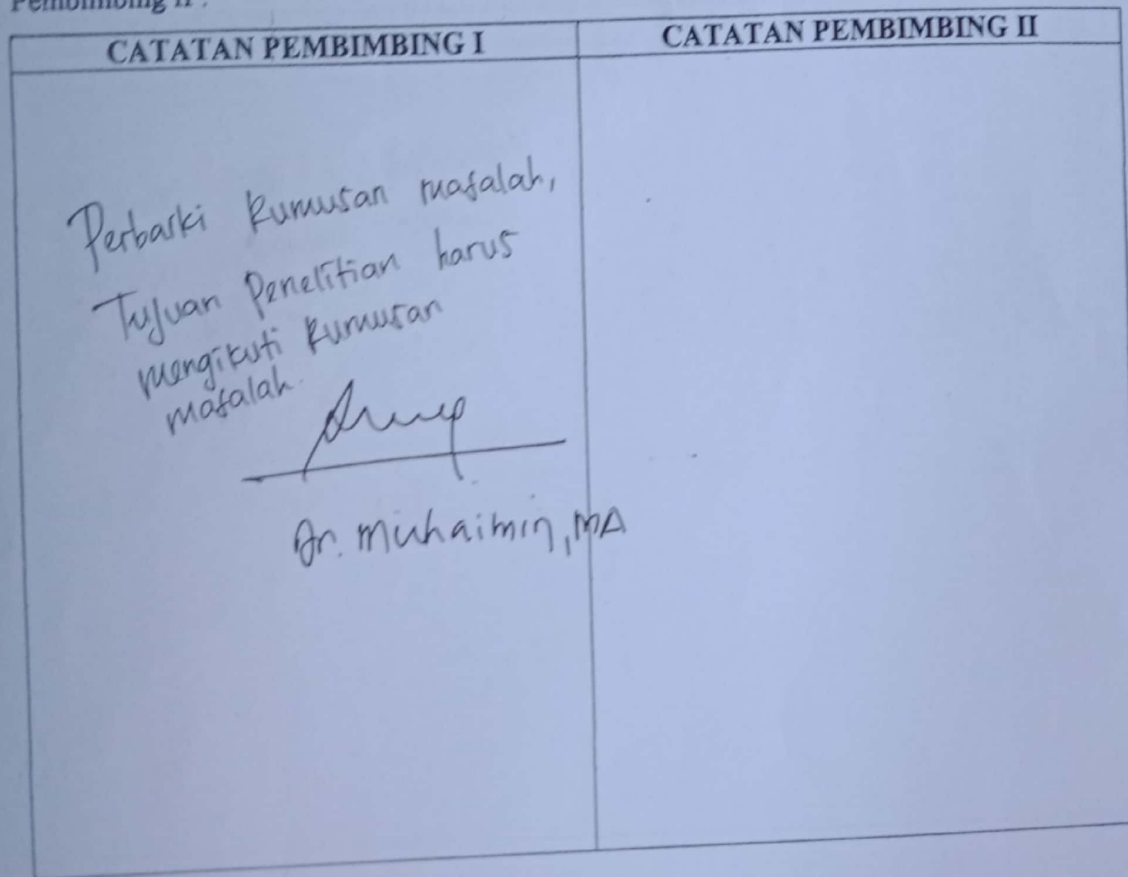 Pembimbing II :
CATATAN PEMBIMBING I
CATATAN PEMBIMBING II
Perbaiki Rumusan masalah,
Tujuan Penelitian harus
mengikuti Rumusan
masalah.
Dr. Muhaimin, MA